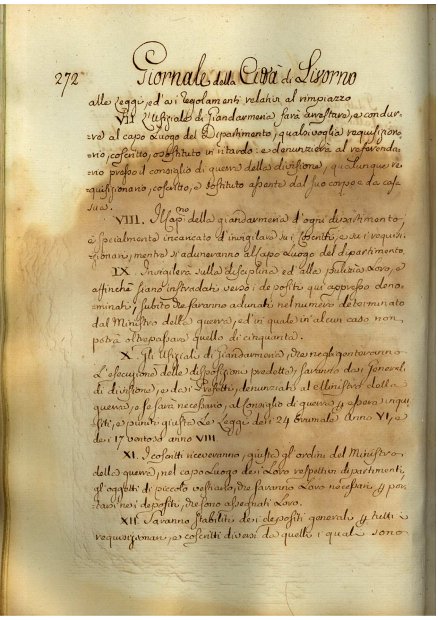 272 Giornale della Città di Livorno
alle Leggi, ed ai regolamenti relativi al rimpiazzo
VII. L'Ufiziale di Giandarmeria farà arrestare, e condur-
re al capo Luogo del Dipartimento, qualsivoglia requisizio-
nario, coscritto, o sostituto in ritardo: e denunzierà al referenda-
rio presso il consiglio di guerra della divisione, qualunque re-
quisizionario, coscritto, e sostituto assente dal suo corpo e da casa
sua.
VIII. Il Cap.no della giandarmeria d'ogni dipartimento,
è specialmente incaricato d'invigilare su i Coscritti, e su i requisi-
zionari, mentre si aduneranno al Capo Luogo del dipartimento.
IX. Invigilerà sulla disciplina ed alla pulizia Loro, e
affinchè siano instradati verso i depositi qui appresso deno-
minati, subito che saranno adunati nel numero determinato
dal Ministro della guerra, ed in quale in alcun caso non
potrà oltrepassare quello di cinquanta.
X. Gli Ufiziali di Giandarmeria, che negligenteranno
L'esecuzione delle disposizioni predette, saranno dai Generali
di divisione, e dai Prefetti, denunziati al Ministro della
guerra, e se sarà necessario, al Consiglio di guerra p essere inqui-
siti, e puniti giusta Le Leggi dei 24 brumale Anno VI, e
dei 17 ventoso anno VIII.
XI. I coscritti riceveranno, giusta gl'ordini del Ministro
della guerra, nel capo Luogo dei Loro respettivi dipartimenti,
gl'oggetti di piccolo vestiario, che saranno Loro necessari p por-
tarsi nei depositi, che sono assegnati Loro.
XII. Saranno stabiliti dei depositi generali p tutti i
requisizionari, e coscritti diversi da quelli i quali sono